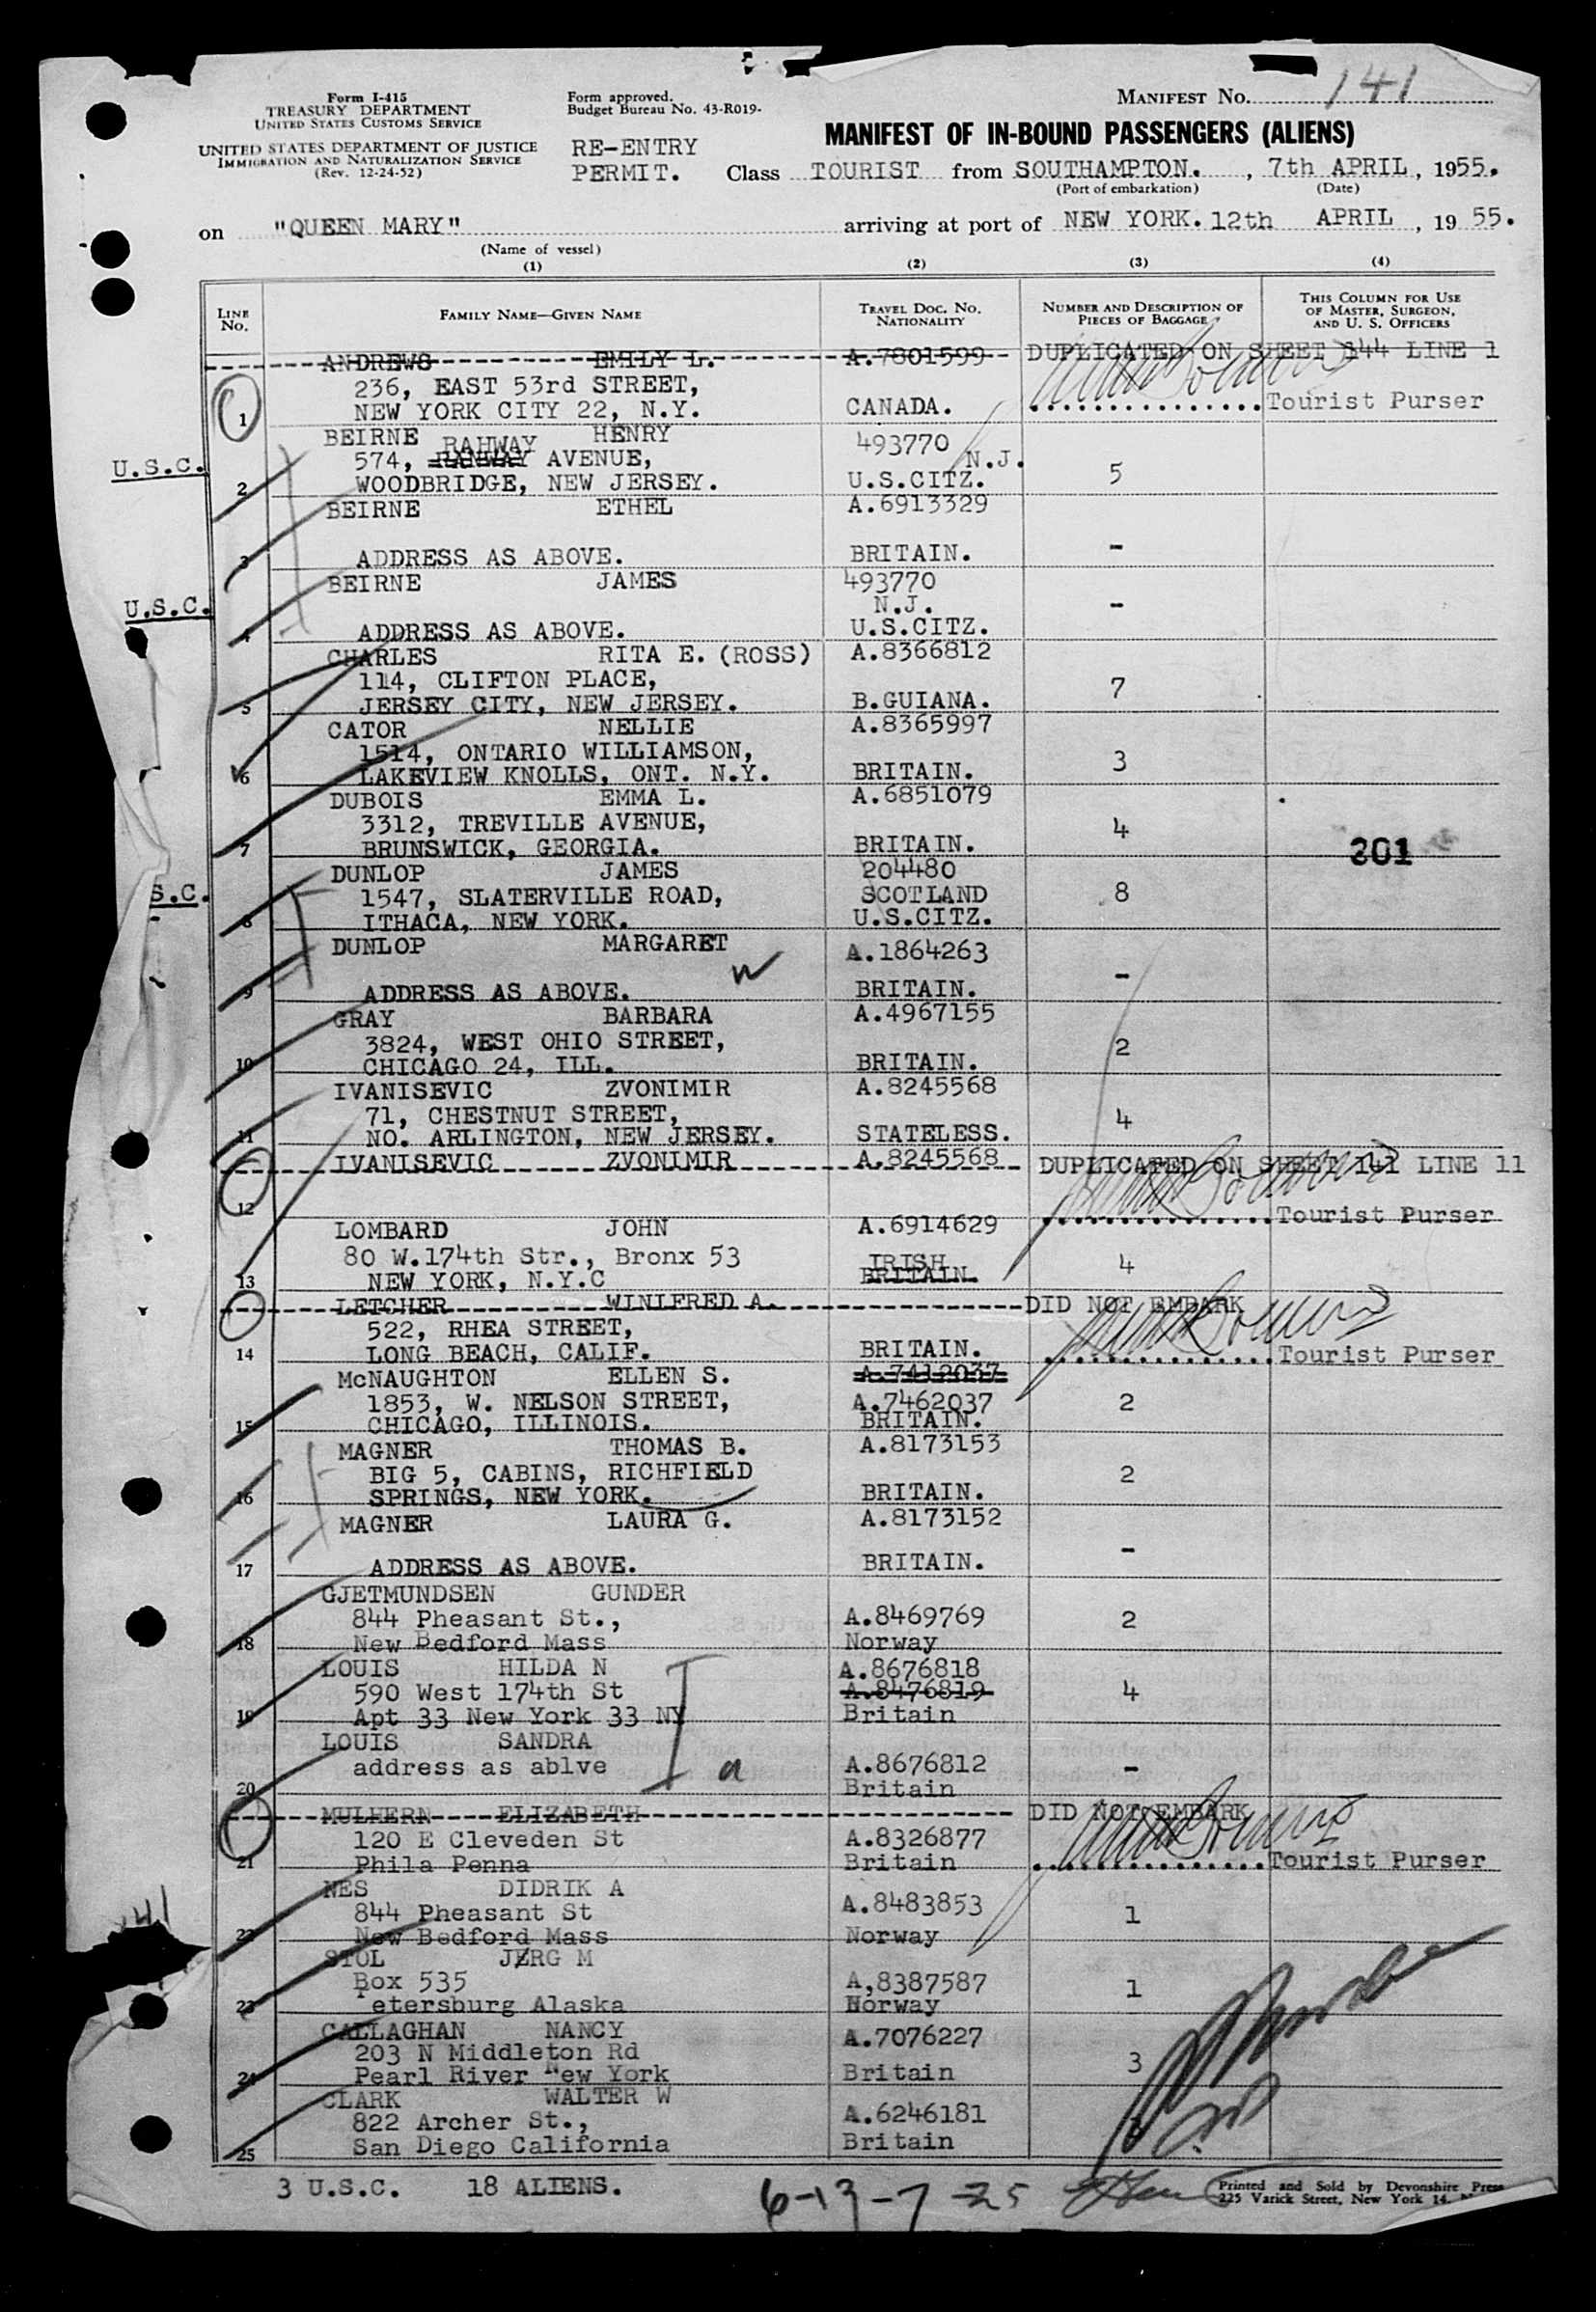 Form I-415
TREASURY DEPARTMENT
UNITED STATES CUSTOMS SERVICE
UNITED STATES DEPARTMENT OF JUSTICE
IMMIGRATION AND NATURALIZATION SERVICE
(Rev. 12-24-52)
Form approved.
Budget Bureau No. 43-R019-
RE-ENTRY
PERMIT.
MANIFEST NO. 141
MANIFEST OF IN-BOUND PASSENGERS (ALIENS)
Class TOURIST from SOUTHAMPTON. , 7th APRIL , 1955.
(Port of embarkation) (Date)
on "QUEEN MARY" arriving at port of NEW YORK. 12th APRIL , 19 55.
(Name of vessel)
(1) (2) (3) (4)
LINE NO. FAMILY NAME—GIVEN NAME TRAVEL DOC. NO. NATIONALITY NUMBER AND DESCRIPTION OF PIECES OF BAGGAGE THIS COLUMN FOR USE OF MASTER, SURGEON, AND U. S. OFFICERS
ANDREWS EMILY L. A.7801599 DUPLICATED ON SHEET 144 LINE 1
236, EAST 53rd STREET,
1 NEW YORK CITY 22, N.Y. CANADA. Tourist Purser
BEIRNE HENRY 493770
RAHWAY
U.S.C. 574, AVENUE, N.J.
2 WOODBRIDGE, NEW JERSEY. U.S.CITZ. 5
BEIRNE ETHEL A.6913329
3 ADDRESS AS ABOVE. BRITAIN. -
BEIRNE JAMES 493770
U.S.C. N.J. -
4 ADDRESS AS ABOVE. U.S.CITZ.
CHARLES RITA E. (ROSS) A.8366812
114, CLIFTON PLACE,
5 JERSEY CITY, NEW JERSEY. B.GUIANA. 7
CATOR NELLIE A.8365997
1514, ONTARIO WILLIAMSON,
6 LAKEVIEW KNOLLS, ONT. N.Y. BRITAIN. 3
DUBOIS EMMA L. A.6851079
3312, TREVILLE AVENUE,
7 BRUNSWICK, GEORGIA. BRITAIN. 4
301
DUNLOP JAMES 204480
S.C. 1547, SLATERVILLE ROAD, SCOTLAND 8
8 ITHACA, NEW YORK. U.S.CITZ.
DUNLOP MARGARET A.1864263
W
9 ADDRESS AS ABOVE. BRITAIN. -
GRAY BARBARA A.4967155
3824, WEST OHIO STREET,
10 CHICAGO 24, ILL. BRITAIN. 2
IVANISEVIC ZVONIMIR A.8245568
71, CHESTNUT STREET,
11 NO. ARLINGTON, NEW JERSEY. STATELESS. 4
IVANISEVIC ZVONIMIR A.8245568 DUPLICATED ON SHEET 141 LINE 11
12 Tourist Purser
LOMBARD JOHN A.6914629
80 W.174th Str., Bronx 53 IRISH 4
13 NEW YORK, N.Y.C BRITAIN.
LETCHER WINIFRED A. DID NOT EMBARK
522, RHEA STREET,
14 LONG BEACH, CALIF. BRITAIN. Tourist Purser
McNAUGHTON ELLEN S. A.7412037
1853, W. NELSON STREET, A.7462037 2
15 CHICAGO, ILLINOIS. BRITAIN.
MAGNER THOMAS B. A.8173153
BIG 5, CABINS, RICHFIELD 2
16 SPRINGS, NEW YORK. BRITAIN.
MAGNER LAURA G. A.8173152
17 ADDRESS AS ABOVE. BRITAIN. -
GJETMUNDSEN GUNDER
844 Pheasant St., A.8469769 2
18 New Bedford Mass Norway
LOUIS HILDA N A.8676818
590 West 174th St A.8476819 4
19 Apt 33 New York 33 NY Britain
LOUIS SANDRA
address as ablve a A.8676812 -
20 Britain
MULHERN ELIZABETH DID NOT EMBARK
120 E Cleveden St A.8326877
21 Phila Penna Britain Tourist Purser
NES DIDRIK A
844 Pheasant St A.8483853 1
141
22 New Bedford Mass Norway
STOL JØRG M
Box 535 A,8387587 1
23 Petersburg Alaska Norway
CALLAGHAN NANCY A.7076227
203 N Middleton Rd
24 Pearl River New York Britain 3
CLARK WALTER W
822 Archer St., A.6246181
25 San Diego California Britain
3 U.S.C. 18 ALIENS. 6-13-7 25
Printed and Sold by Devonshire Press
225 Varick Street, New York 14.